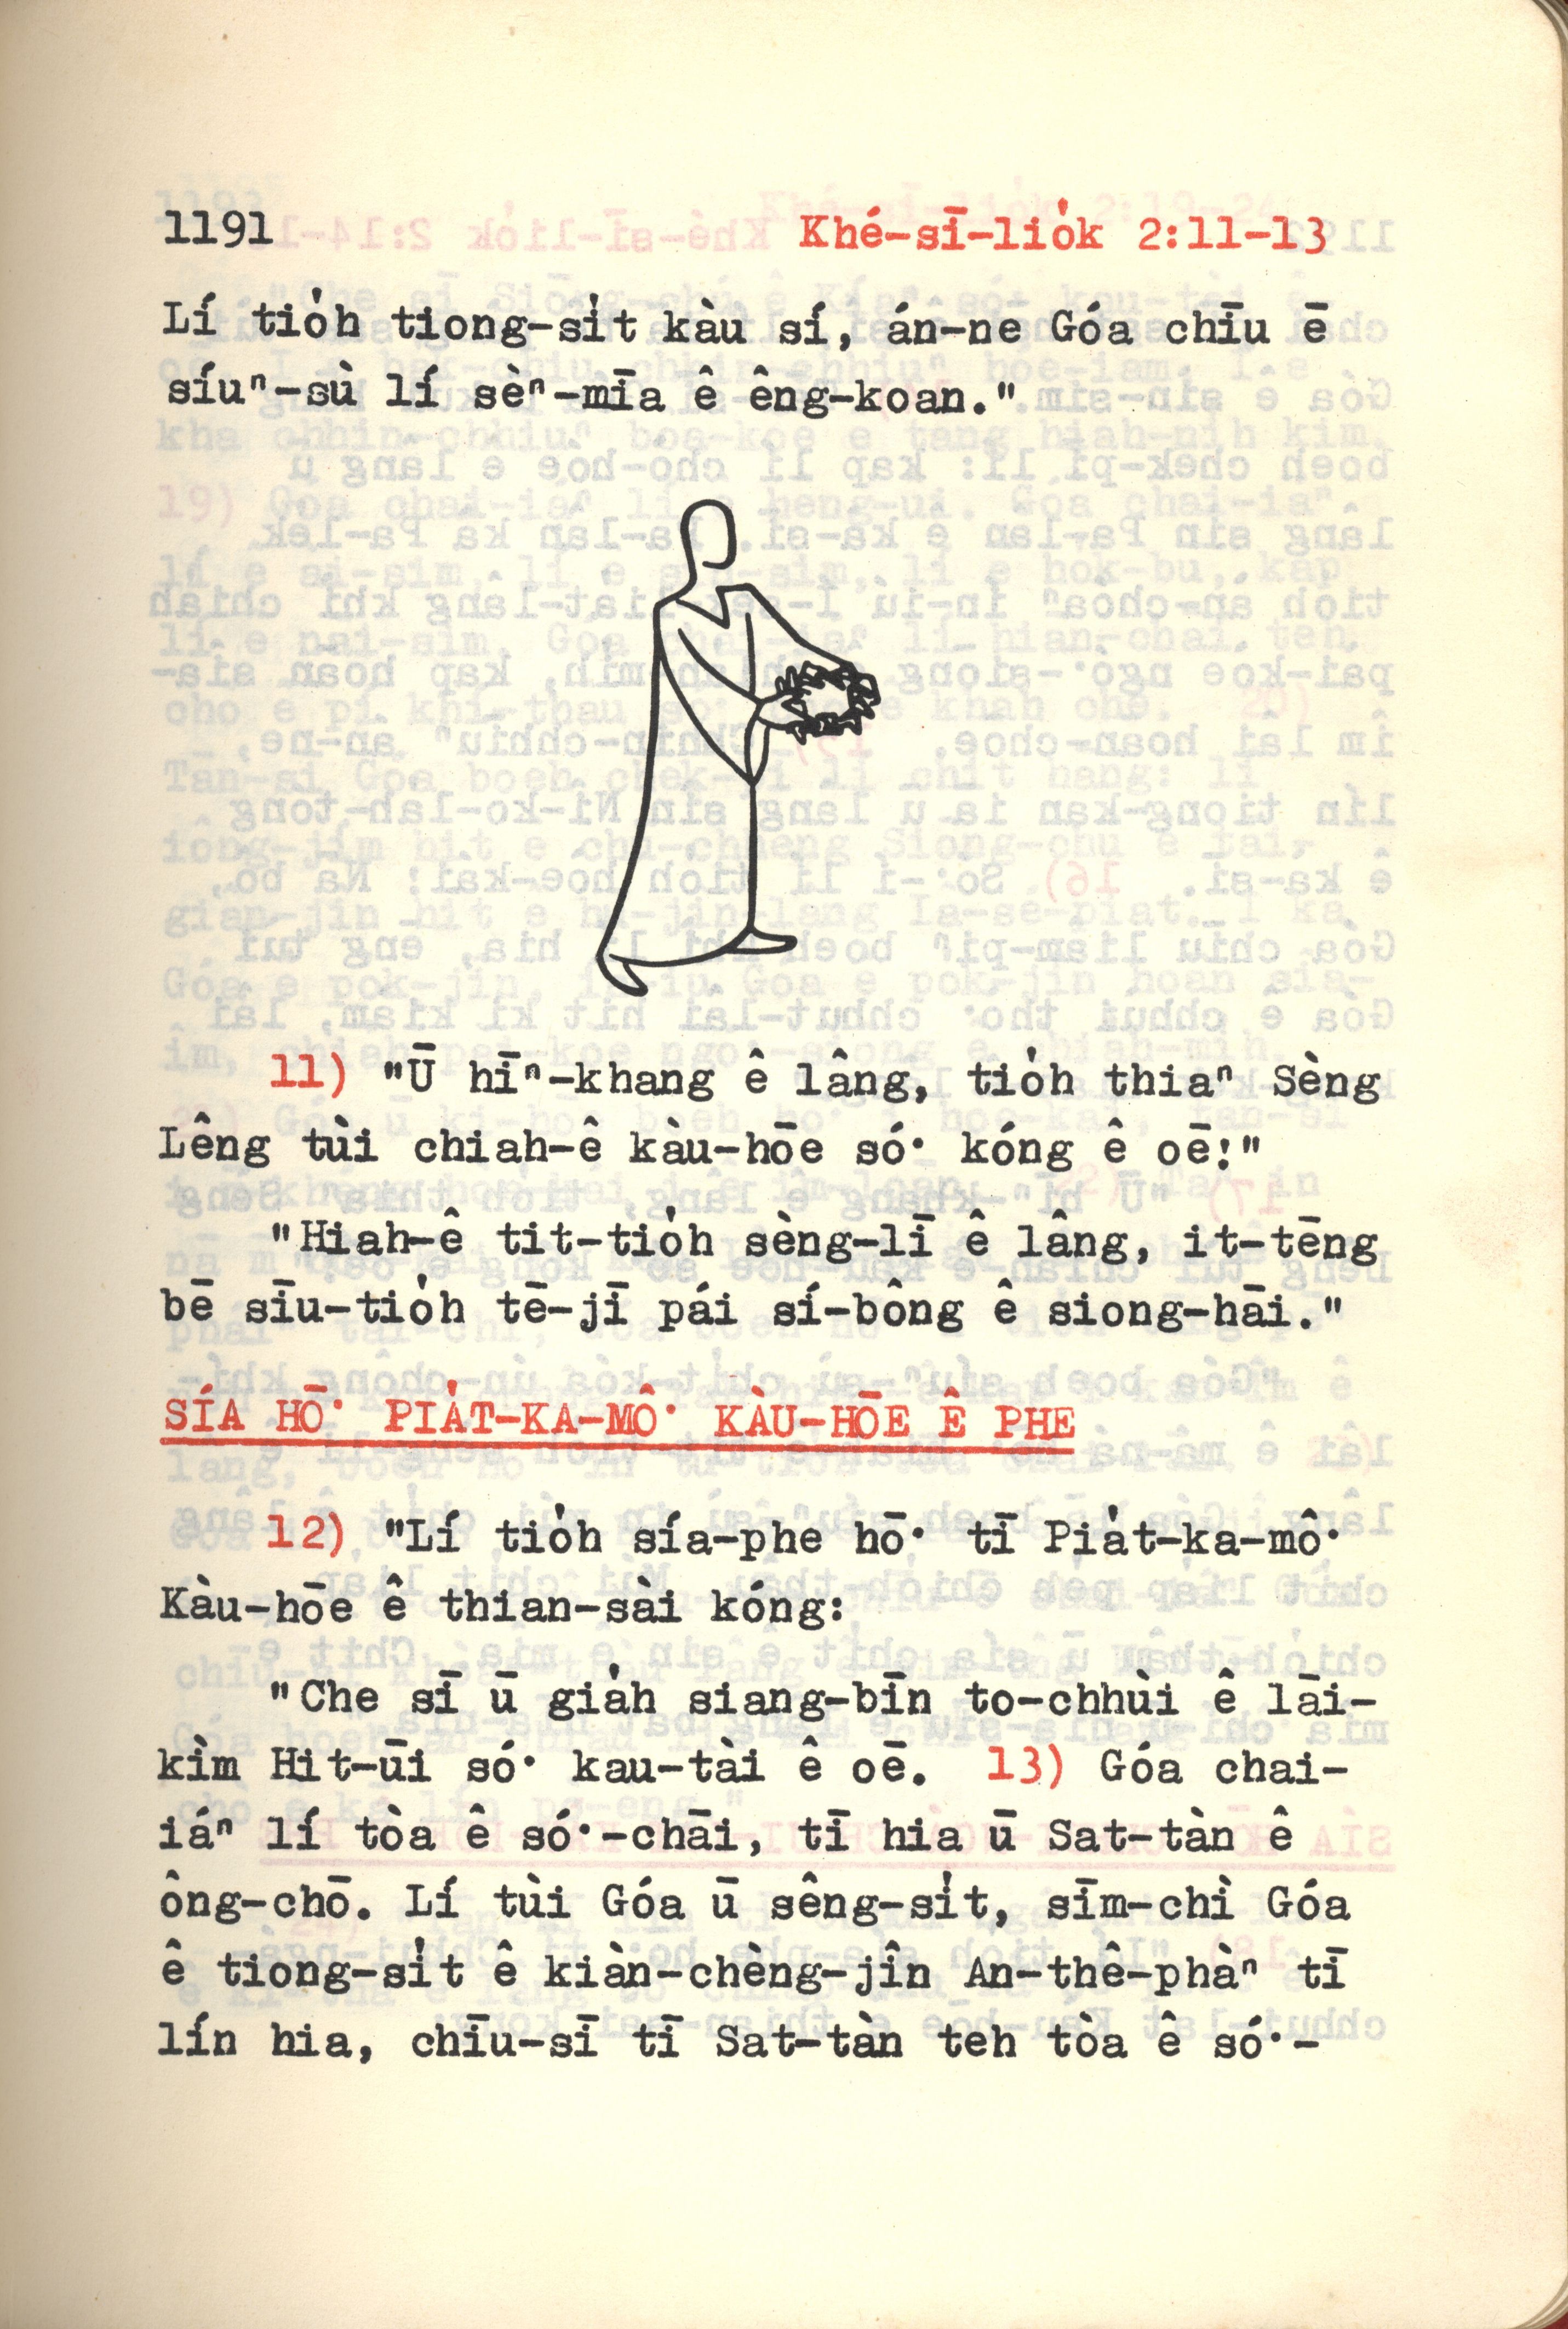 1191 Khé-sī-lio̍k 2:11-13
Lí tio̍h tiong-si̍t kàu sí, án-ne Góa chīu ē
síuⁿ-sù lí sèⁿ-mīa ê êng-koan."
11) "Ū hīⁿ-khang ê lâng, tio̍h thiaⁿ Sèng
Lêng tùi chiah-ê kàu-hōe só͘ kóng ê oē!"
"Hiah-ê tit-tio̍h sèng-lī ê lâng, it-tēng
bē sīu-tio̍h tē-jī pái sí-bông ê siong-hāi."
SÍA HŌ͘ PIA̍T-KA-MÔ͘ KÀU-HŌE Ê PHE
12) "Lí tio̍h sía-phe hō͘ tī Pia̍t-ka-mô͘
Kàu-hōe ê thian-sài kóng:
"Che sī ū gia̍h siang-bīn to-chhùi ê lāi-
kìm Hit-ūi só͘ kau-tài ê oē. 13) Góa chai-
iáⁿ lí tòa ê só͘-chāi, tī hia ū Sat-tàn ê
ông-chō. Lí tùi Góa ū sêng-si̍t, sīm-chì Góa
ê tiong-si̍t ê kiàn-chèng-jîn An-thê-phàⁿ tī
lín hia, chīu-sī tī Sat-tàn teh tòa ê só͘-